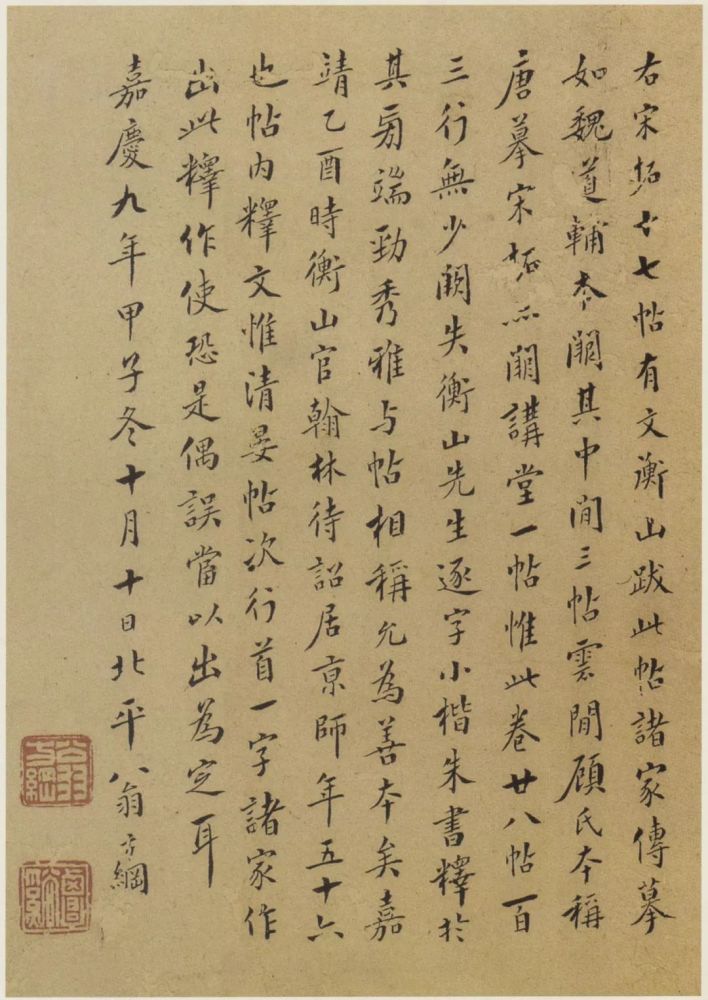 右宋拓十七帖有文衡山跋此帖諸家傳摹
如魏道輔本闕其中間三帖雲間顧氏本稱
唐摹宋拓亦闕講堂一帖惟此卷廿八帖一百
三行無少闕失衡山先生逐字小楷朱書釋於
其旁端勁秀雅与帖相稱允為善本矣嘉
靖乙酉時衡山官翰林待詔居京師年五十六
也帖内釋文惟清晏帖次行首一字諸家作
出此釋作使恐是偶誤當以出為定耳
嘉慶九年甲子冬十月十日北平翁方綱
翁方綱
覃谿